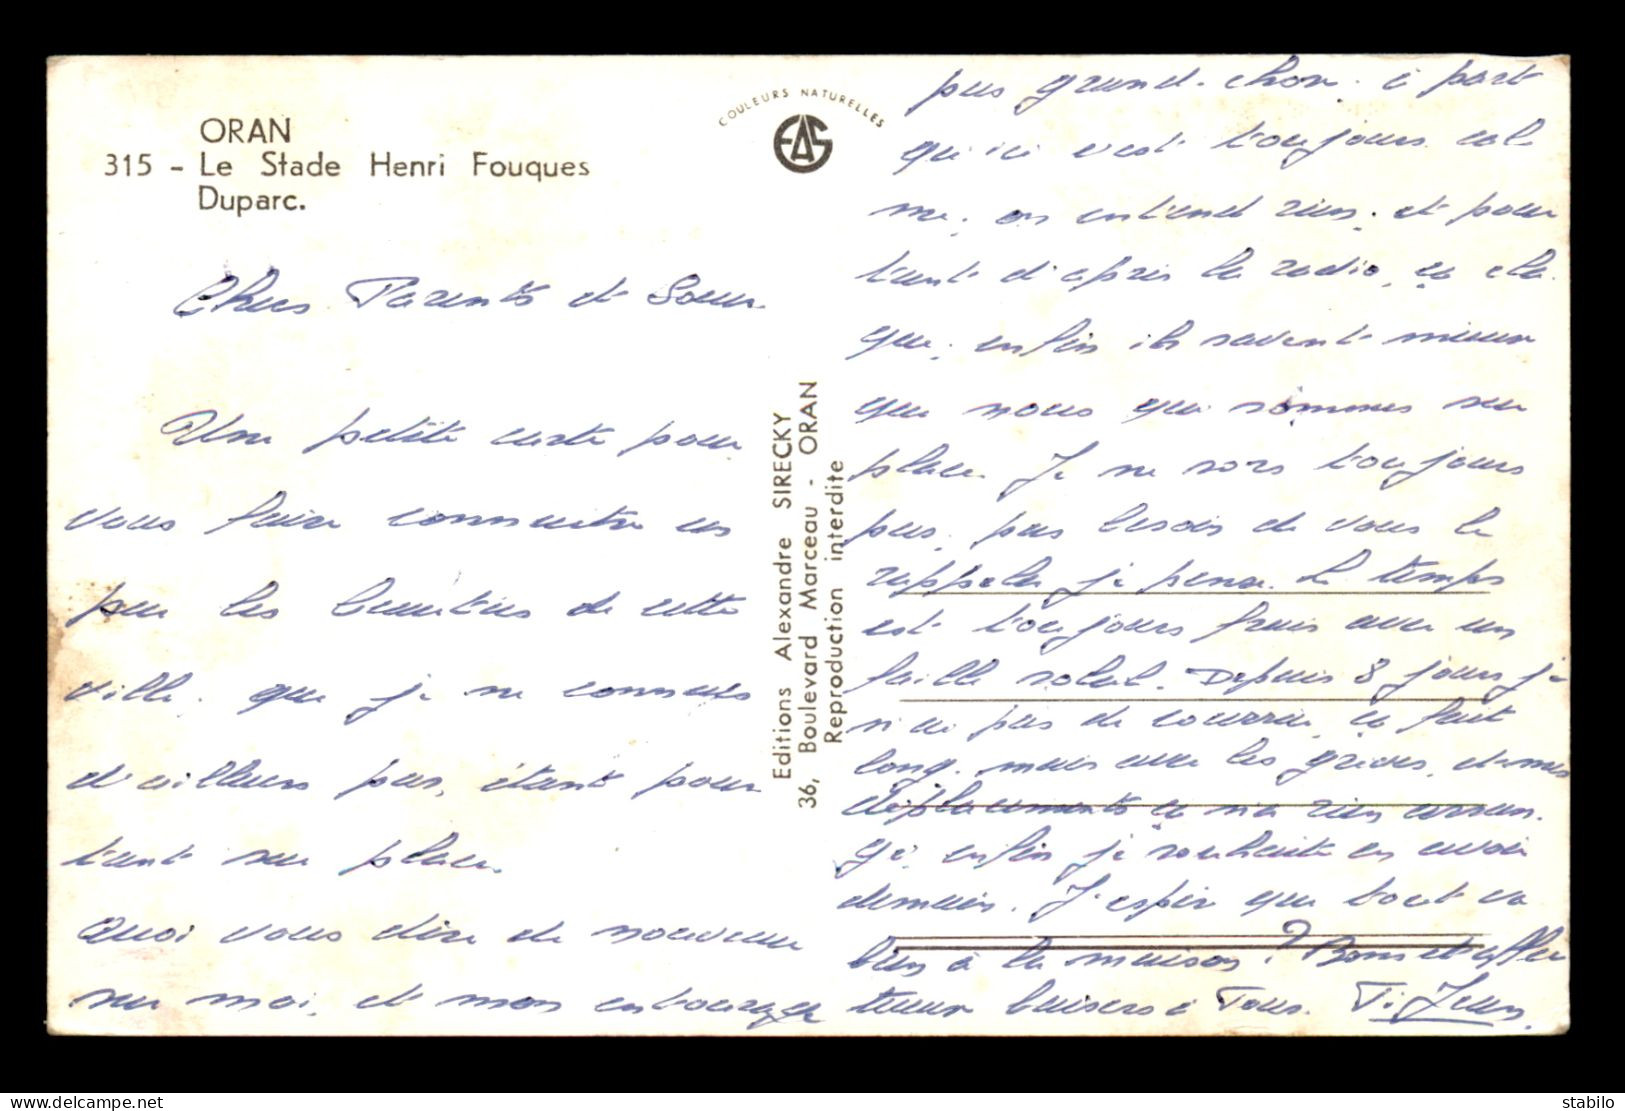 ORAN
315 - Le Stade Henri Fouques
Duparc.
COULEURS NATURELLES
EAS
Chers Parents et Soeur
Une petite carte pour
vous faire connaitre un
peu les beautées de cette
ville. que je ne connais
d'ailleurs pas, étant pour
tant sur place.
Quoi vous dire de nouveau
sur moi, et mon entourage
Editions Alexandre SIRECKY
36, Boulevard Marceau - ORAN
Reproduction interdite
pas grand-chose. à part
qu'ici c'est toujours cal
me, on entend rien. et pour
tant d'après la radio, ça cla
que, enfin ils savent mieux
que nous qui sommes sur
place. Je ne sors toujours
pas, pas besoin de vous le
rappeler je pense. Le temps
est toujours frais avec un
faible soleil. Depuis 8 jours je
n'ai pas de courrier, ça fait
long. mais avec les grèves, et mes
déplacements ça n'a rien arran
gé, enfin je souhaite en avoir
demain. J'espère que tout va
bien à la maison? Bons et affec
tueux baisers à Tous. Ti Jean.
stabilo